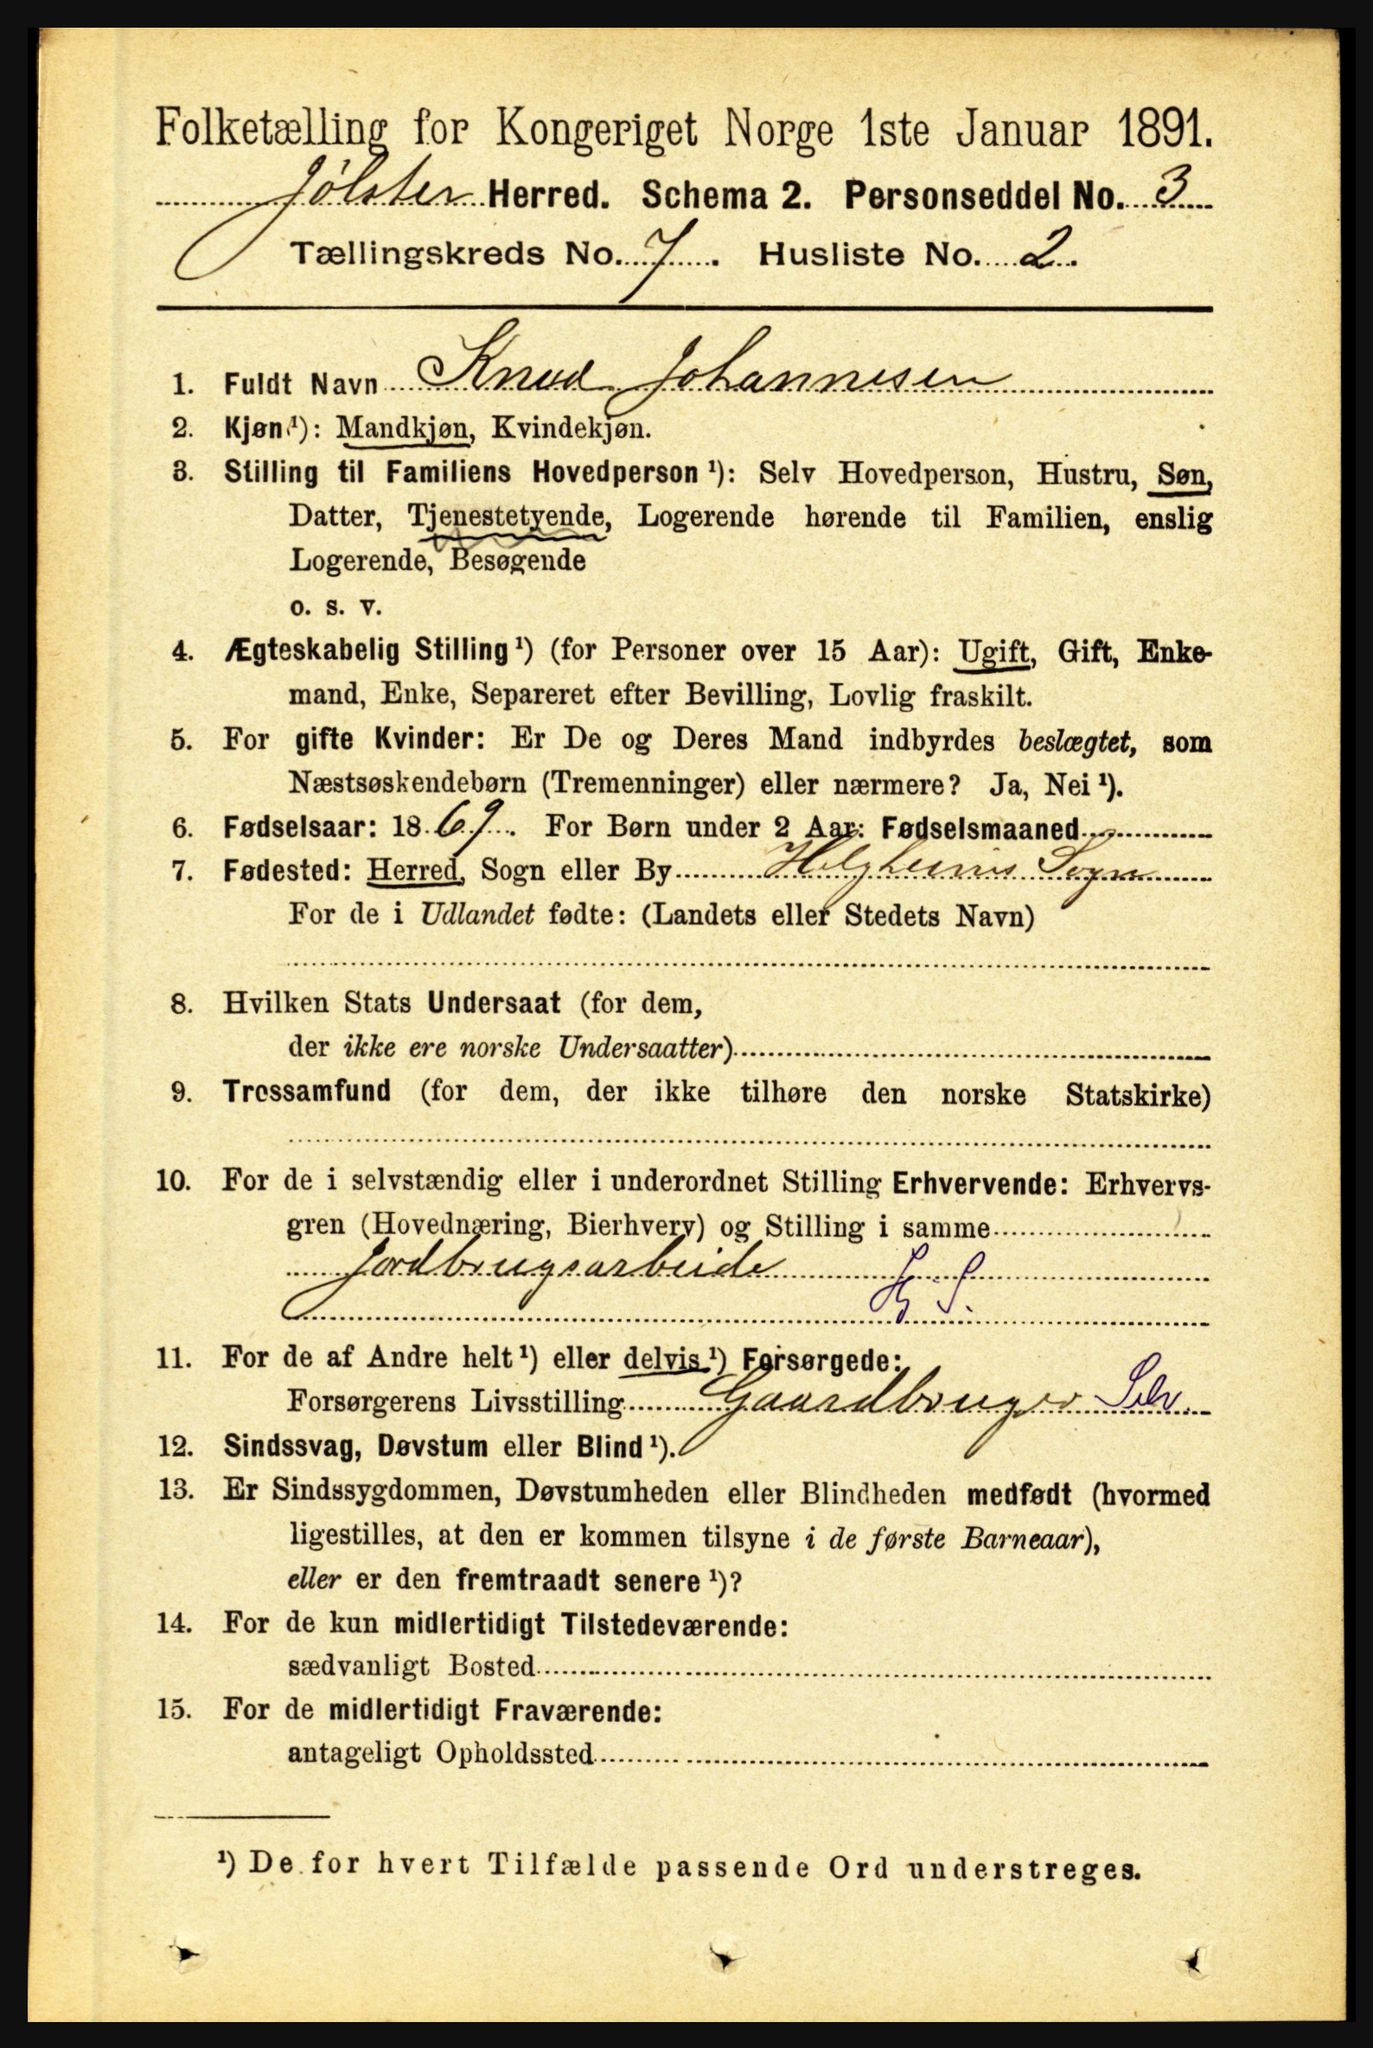 Folketælling for Kongeriget Norge 1ste Januar 1891.
Jølster Herred. Schema 2. Personseddel No. 3
Tællingskreds No. 7. Husliste No. 2.
1. Fuldt Navn Knud Johannesen
2. Kjøn ¹): Mandkjøn, Kvindekjøn.
3. Stilling til Familiens Hovedperson ¹): Selv Hovedperson, Hustru, Søn,
Datter, Tjenestetyende, Logerende hørende til Familien, enslig
Logerende, Besøgende
o. s. v.
4. Ægteskabelig Stilling ¹) (for Personer over 15 Aar): Ugift, Gift, Enke-
mand, Enke, Separeret efter Bevilling, Lovlig fraskilt.
5. For gifte Kvinder: Er De og Deres Mand indbyrdes beslægtet, som
Næstsøskendebørn (Tremenninger) eller nærmere? Ja, Nei ¹).
6. Fødselsaar: 1869. For Børn under 2 Aar: Fødselsmaaned
7. Fødested: Herred, Sogn eller By Helgheims Sogn
For de i Udlandet fødte: (Landets eller Stedets Navn)
8. Hvilken Stats Undersaat (for dem,
der ikke ere norske Undersaatter)
9. Trossamfund (for dem, der ikke tilhøre den norske Statskirke)
10. For de i selvstændig eller i underordnet Stilling Erhvervende: Erhvervs-
gren (Hovednæring, Bierhverv) og Stilling i samme
Jordbrugsarbeide
S.
11. For de af Andre helt ¹) eller delvis ¹) Forsørgede:
Forsørgerens Livsstilling Gaardbruger Selv.
12. Sindssvag, Døvstum eller Blind ¹).
13. Er Sindssygdommen, Døvstumheden eller Blindheden medfødt (hvormed
ligestilles, at den er kommen tilsyne i de første Barneaar),
eller er den fremtraadt senere ¹)?
14. For de kun midlertidigt Tilstedeværende:
sædvanligt Bosted
15. For de midlertidigt Fraværende:
antageligt Opholdssted
¹) De for hvert Tilfælde passende Ord understreges.